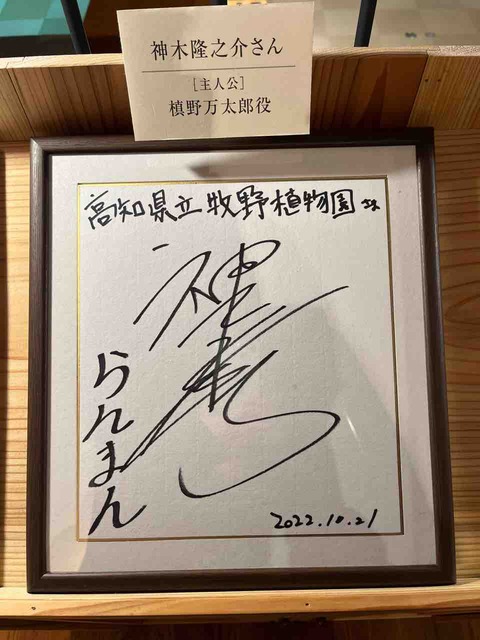 神木隆之介さん
[主人公]
槙野万太郎役
高知県立牧野植物園さん
らんまん
2022.10.21